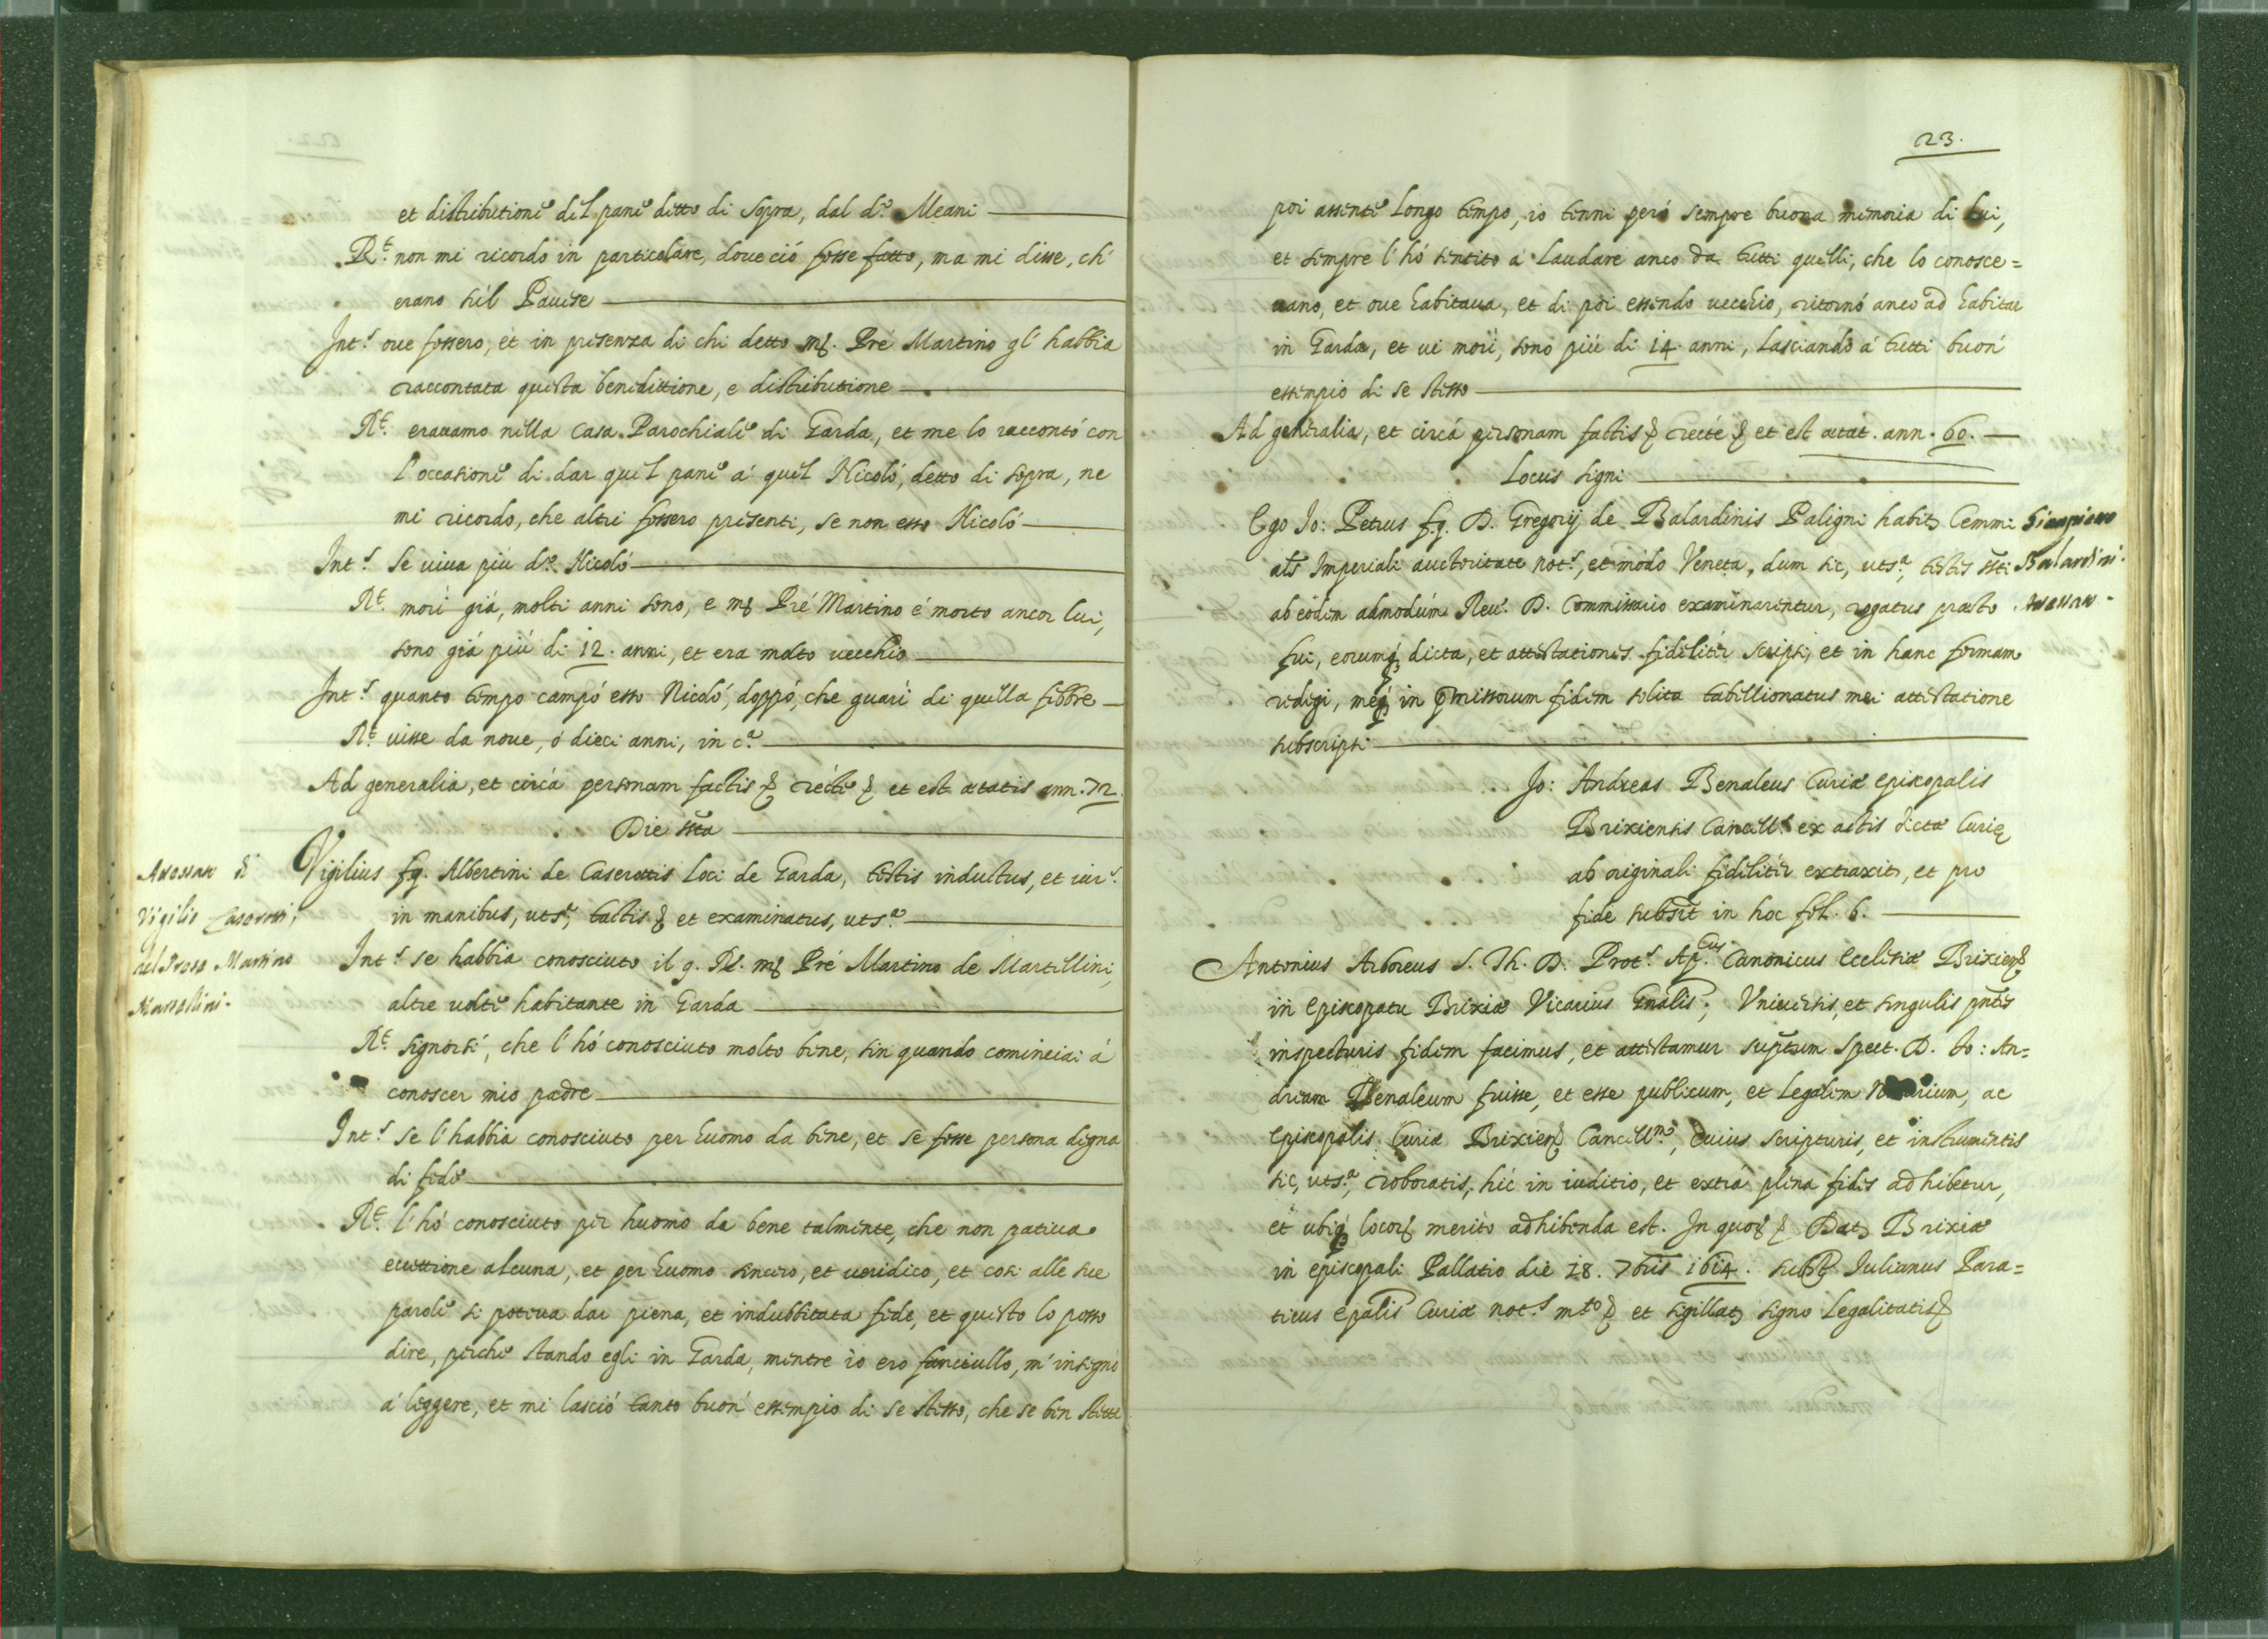 et distributione del pane ditto di sopra, dal d.o Meani
R.t non mi ricordo in particolare, doue ció fosse fatto, ma mi disse, ch'
erano sú'l Pauese
Int.s oue fossero, et in presenza di chi detto m. Pré Martino gl' habbia
raccontata questa benedittione, e distributione
R.t erauamo nella casa Parochiale di Garda, et me lo raccontó con
l'occasione di dar quel pane á quel Nicoló, detto di sopra, ne
mi ricordo, che altri fossero presenti, se non esso Nicoló
Int.s se uiua piu d.o Nicoló
R.t morì giá, molti anni sono, e m. Pré Martino é morto ancor lui,
sono giá piú di 12. anni, et era molto uecchio
Int.s quanto tempo campó esso Nicoló, doppó, che guarì di quella febbre
R.t uisse da noue, ó dieci anni, in c.a
Ad generalia, et circá personam factis & recté & et est ætatis ann. 72
Die s̃ta
Vigilius fq. Albertini de Caserottis loci de Garda, testis inductus, et iur.s
in manibus, uts.a, tactis & et examinatus, uts.a
Int.s se habbia conosciuto il q. R. m. Pré Martino de Martellini,
altre uolte habitante in Garda
R.t signorsí, che l'hó conosciuto molto bene, sin quando cominciai á
conoscer mio padre
Int.s se l'habbia conosciuto per huomo da bene, et se fosse persona digna
di fede
R.t l'hó conosciuto per huomo da bene talmente, che non patiua
ecettione alcuna, et per huomo sincero, et ueridico, et cosi alle sue
parole si poteua dar piena, et indubbitata fede, et questo lo posso
dire, perche stando egli in Garda, mentre io ero fanciullo, m'insegnó
á leggere, et mi lasció tanto buon' essempio di se stesso, che se ben stette
di
Vigilio Caserotti
del Prete Martino
Martellini.
23.
poi assente longo tempo, io tenni peró sempre buona memoria di lui,
et sempre l'hó sentito á laudare anco da tutti quelli, che lo conosce=
uano, et oue habitaua, et di poi essendo uecchio, ritornó anco ad habitar
in Garda, et ui morì, sono piú di 14. anni, lasciando á tutti buon'
essempio di se stesso
Ad generalia, et circá personam factis & recté & et est ætat. ann. 60.
Locus signi
Ego Jo: Petrus fq. D. Gregorij de Balardinis Paligni habit. Cemmi
als Imperiali auctoritate not.s, et modo Veneta, dum sic, uts.a, testes s̃ti
ab eodem admodúm Reu. D. Commissario examinarentur, rogatus præsto
fui, eorumq; dicta, et attestationes fideliter scripsi, et in hanc formam
redegi, meq; in p̃missorum fidem solita tabellionatus mei attestatione
subscripsi
Balardini.
Jo: Andreas Benaleus Curiæ episcopalis
Brixiensis Cancell.s ex actis dictæ Curię
ab originali fidelitér extraxit, et pro
fide subs̃it in hoc fol. 6.
Antonius Arboreus S. Th. D. Prot.s Ap.cus Canonicus ecclesiæ Brixien.
in episcopatu Brixiæ Vicarius Gñalis, Vniuersis, et singulis pñtes
inspecturis fidem facimus, et attestamur sup̃tum Spect. D. Jo: An=
dream Benaleum fuisse, et esse publicum, et legalem Notarium, ac
episcopalis Curiæ Brixien. Cancell.m, cuius scripturis, et instrumentis
sic, uts.a, roboratis, hic in iuditio, et extrá plena fides adhibetur,
et ubiq; locor. merito adhibenda est. In quor. & Dat. Brixiæ
in episcopali Pallatio die 18. 7bris 1614. subst Iulianus Para=
ticus epalis Curiæ not.s m.to & et sigillat. signo legalitatis &